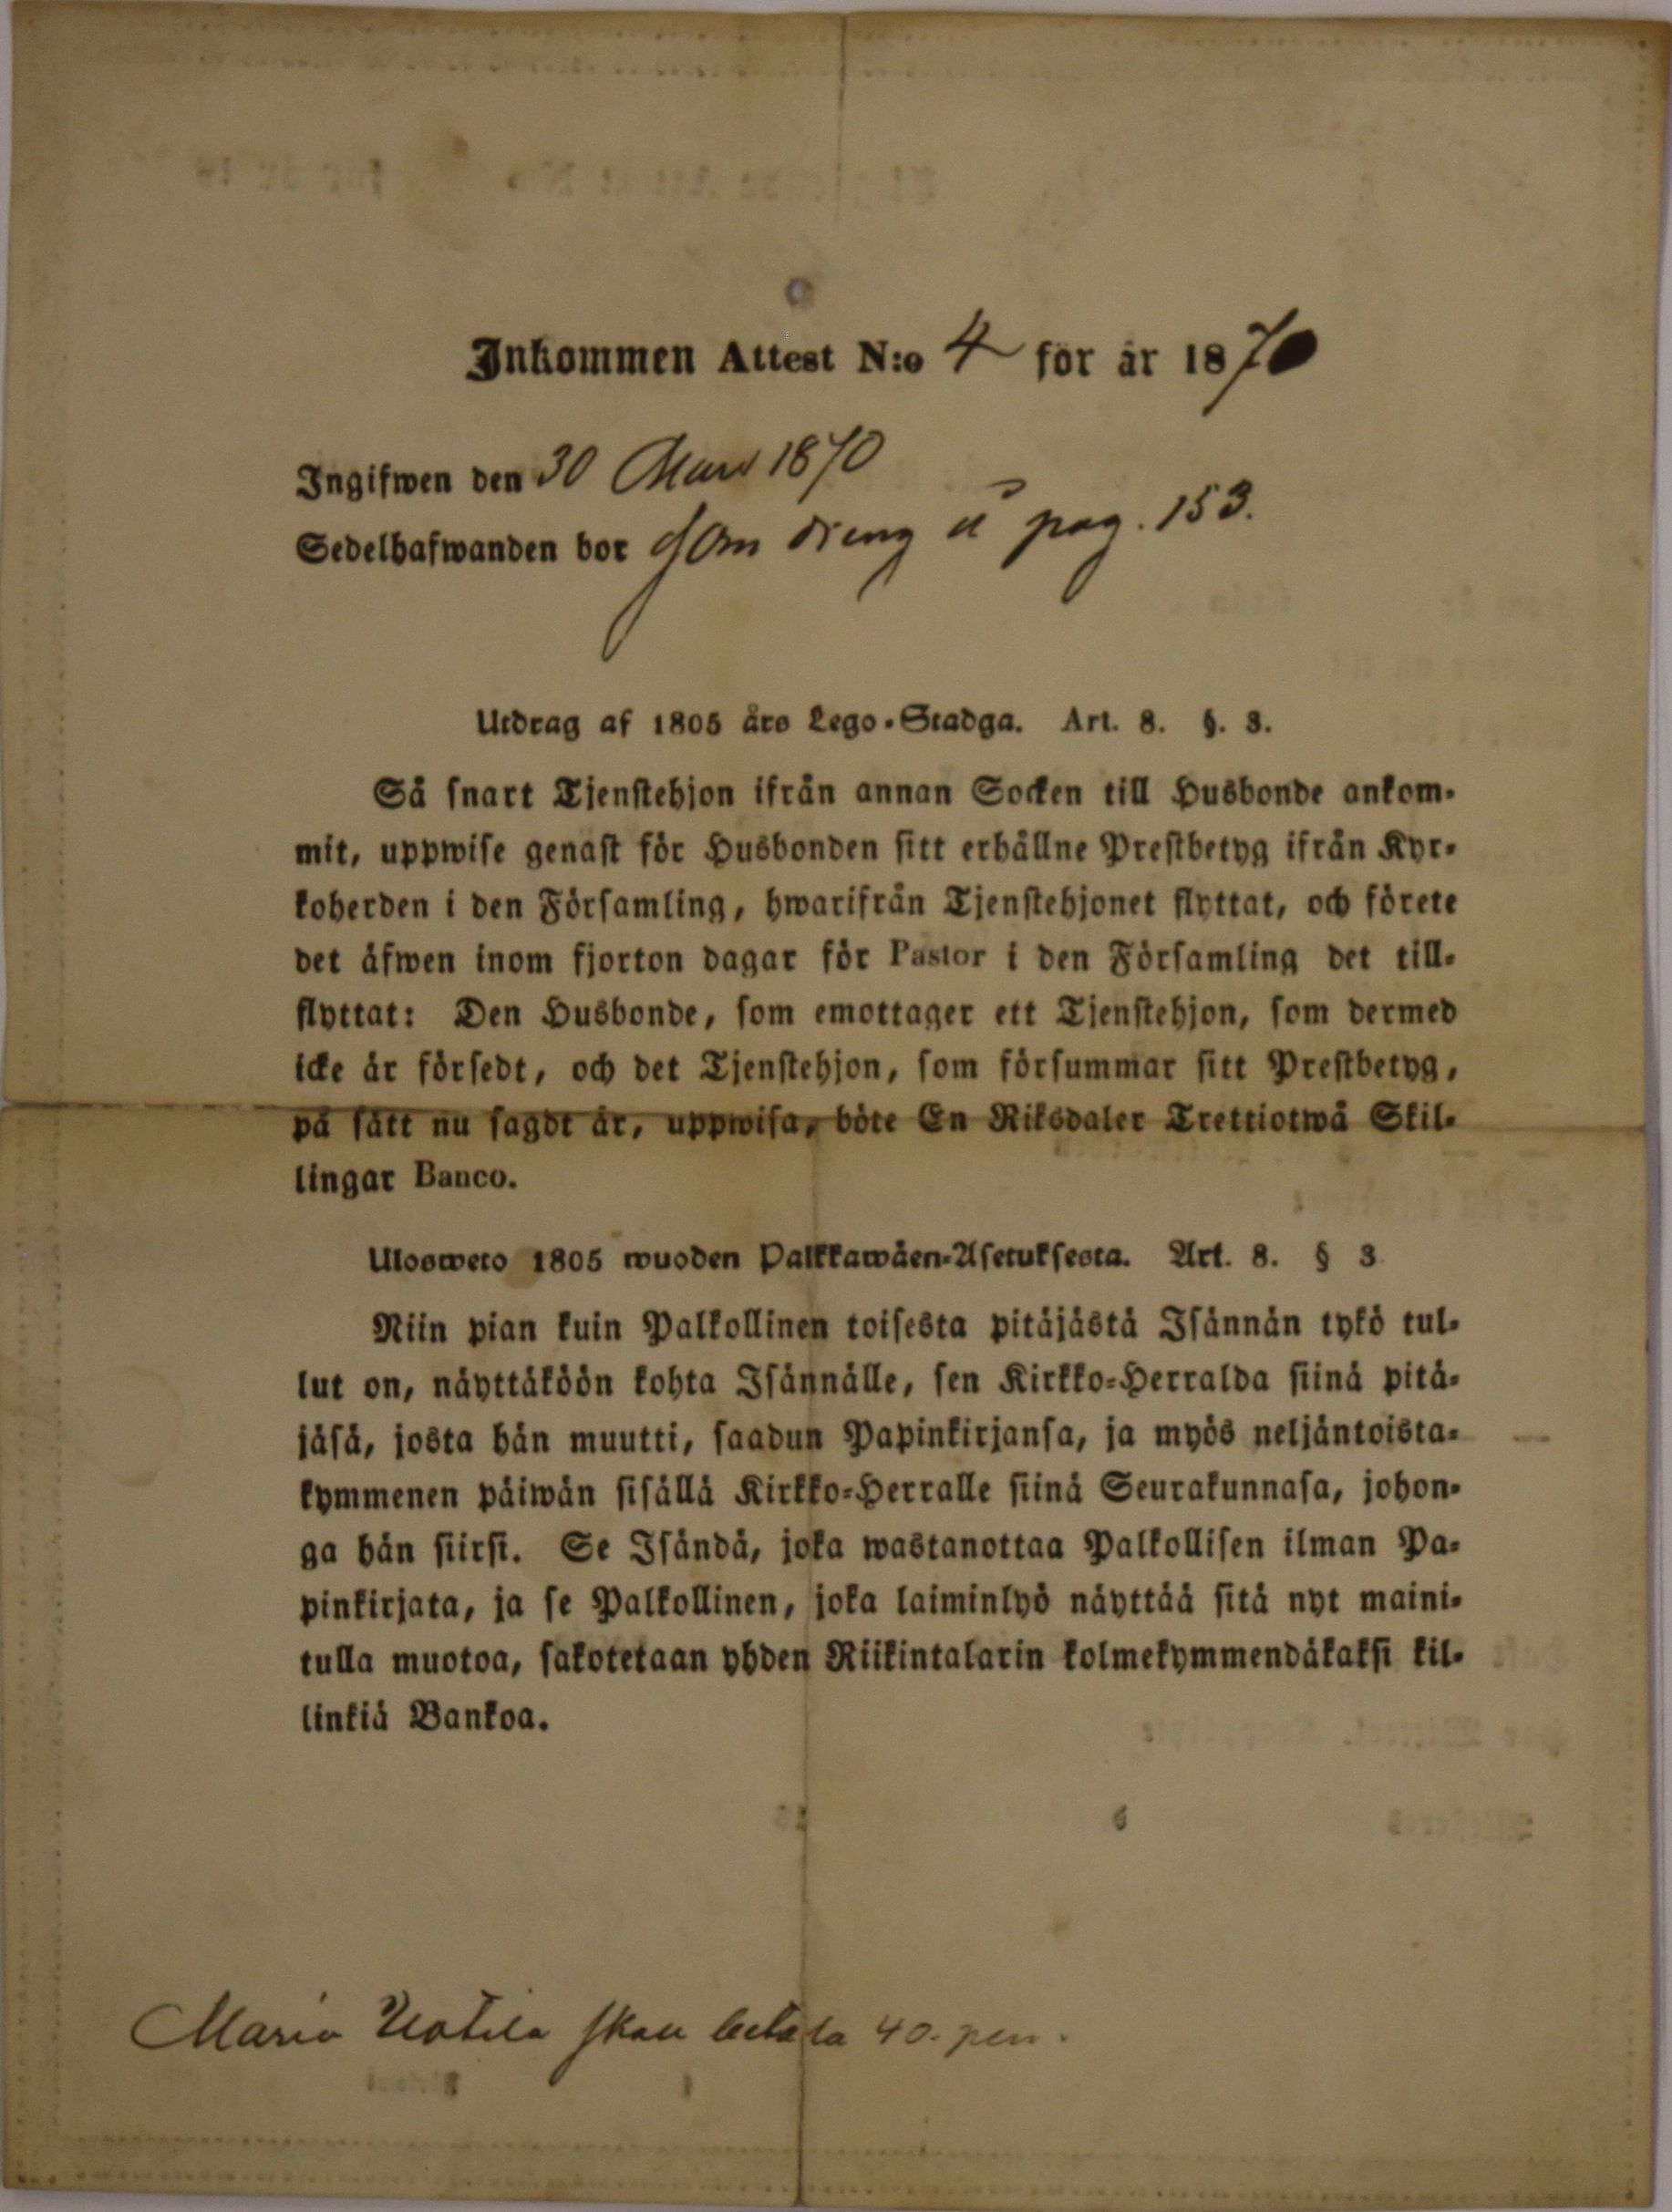 Inkommen Attest N:o 4 för år 1870
Ingifwen den 30 Mars 1870
Sedelhafwanden bor som dräng å pag. 153.
Utdrag af 1805 års Lego-Stadga. Art. 8. §. 3.
Så snart Tjenstehjon ifrån annan Socken till Husbonde ankom-
mit, uppwise genast för Husbonden sitt erhållne Prestbetyg ifrån Kyr-
koherden i den Församling, hwarifrån Tjenstehjonet flyttat, och förete
det äfwen inom fjorton dagar för Pastor i den Församling det till-
flyttat: Den Husbonde, som emottager ett Tjenstehjon, som dermed
icke är försedt, och det Tjenstehjon, som försummar sitt Prestbetyg,
på sätt nu sagdt är, uppwisa, böte En Riksdaler Trettiotwå Skil-
lingar Banco.
Ulosweto 1805 wuoden Palkkawäen-Asetuksesta. Art. 8. § 3
Niin pian kuin Palkollinen toisesta pitäjästä Isännän tykö tul-
lut on, näyttäköön kohta Isännälle, sen Kirkko-Herralda siinä pitä-
jäsä, josta hän muutti, saadun Papinkirjansa, ja myös neljäntoista-
kymmenen päiwän sisällä Kirkko-Herralle siinä Seurakunnasa, johon-
ga hän siirsi. Se Isändä, joka wastanottaa Palkollisen ilman Pa-
pinkirjata, ja se Palkollinen, joka laiminlyö näyttää sitä nyt maini-
tulla muotoa, sakotetaan yhden Riikintalarin kolmekymmendäkaksi kil-
linkiä Bankoa.
Maria Uotila skall betala 40. pen.